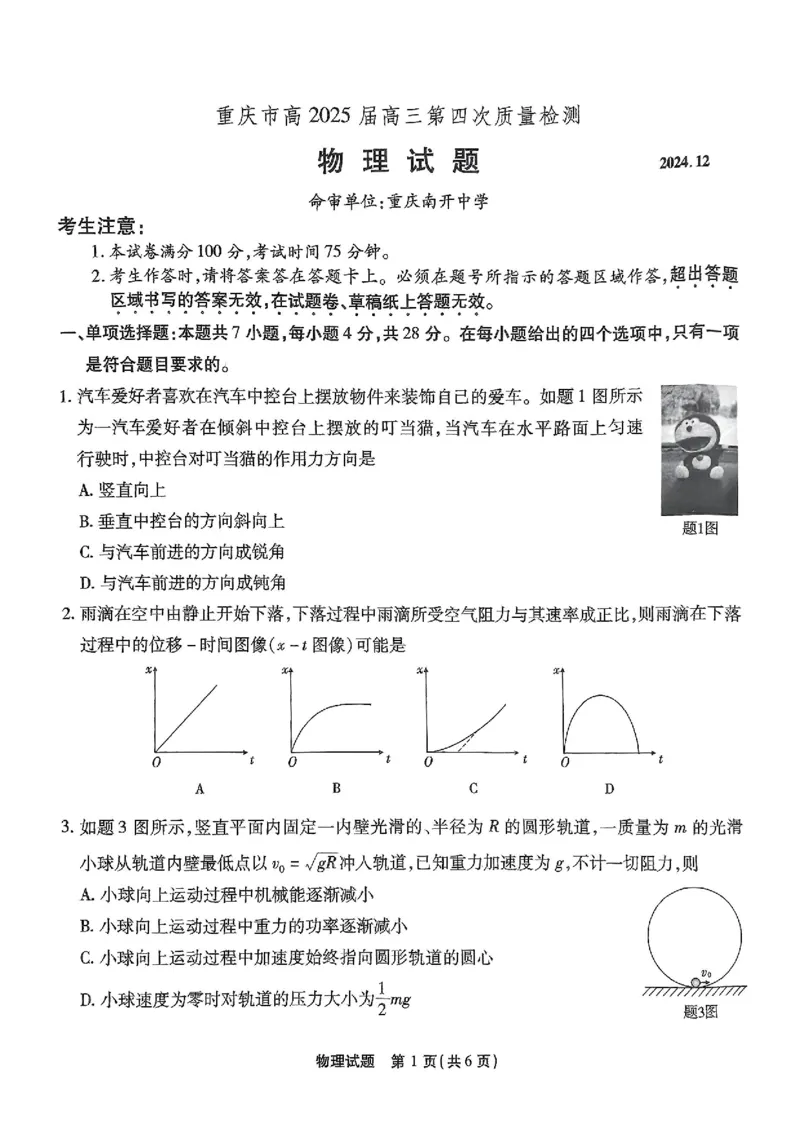 重庆市高2025届高三第四次质量检测
物理试题
2024.12
命审单位:重庆南开中学
考生注意:
1.本试卷满分100分,考试时间75分钟。
2.考生作答时,请将答案答在答题卡上。必须在题号所指示的答题区域作答,超出答题
区域书写的答案无效,在试题卷、草稿纸上答题无效。
一、单项选择题:本题共7小题,每小题4分,共28分。在每小题给出的四个选项中,只有一项
是符合题目要求的。
1.汽车爱好者喜欢在汽车中控台上摆放物件来装饰自己的爱车。如题1图所示
为一汽车爱好者在倾斜中控台上摆放的叮当猫,当汽车在水平路面上匀速
行驶时,中控台对叮当猫的作用力方向是
A.竖直向上
B.垂直中控台的方向斜向上
C.与汽车前进的方向成锐角
D.与汽车前进的方向成钝角
题1图
2.雨滴在空中由静止开始下落,下落过程中雨滴所受空气阻力与其速率成正比,则雨滴在下落
过程中的位移-时间图像(x-t图像)可能是
x x x x
O t O t O t O t
A B C D
3.如题3图所示,竖直平面内固定一内壁光滑的、半径为R的圆形轨道,一质量为m的光滑
小球从轨道内壁最低点以v₀=√gR冲入轨道,已知重力加速度为g,不计一切阻力,则
A.小球向上运动过程中机械能逐渐减小
B.小球向上运动过程中重力的功率逐渐减小
C.小球向上运动过程中加速度始终指向圆形轨道的圆心
D.小球速度为零时对轨道的压力大小为1/2mg
v₀
题3图
物理试题 第1页(共6页)